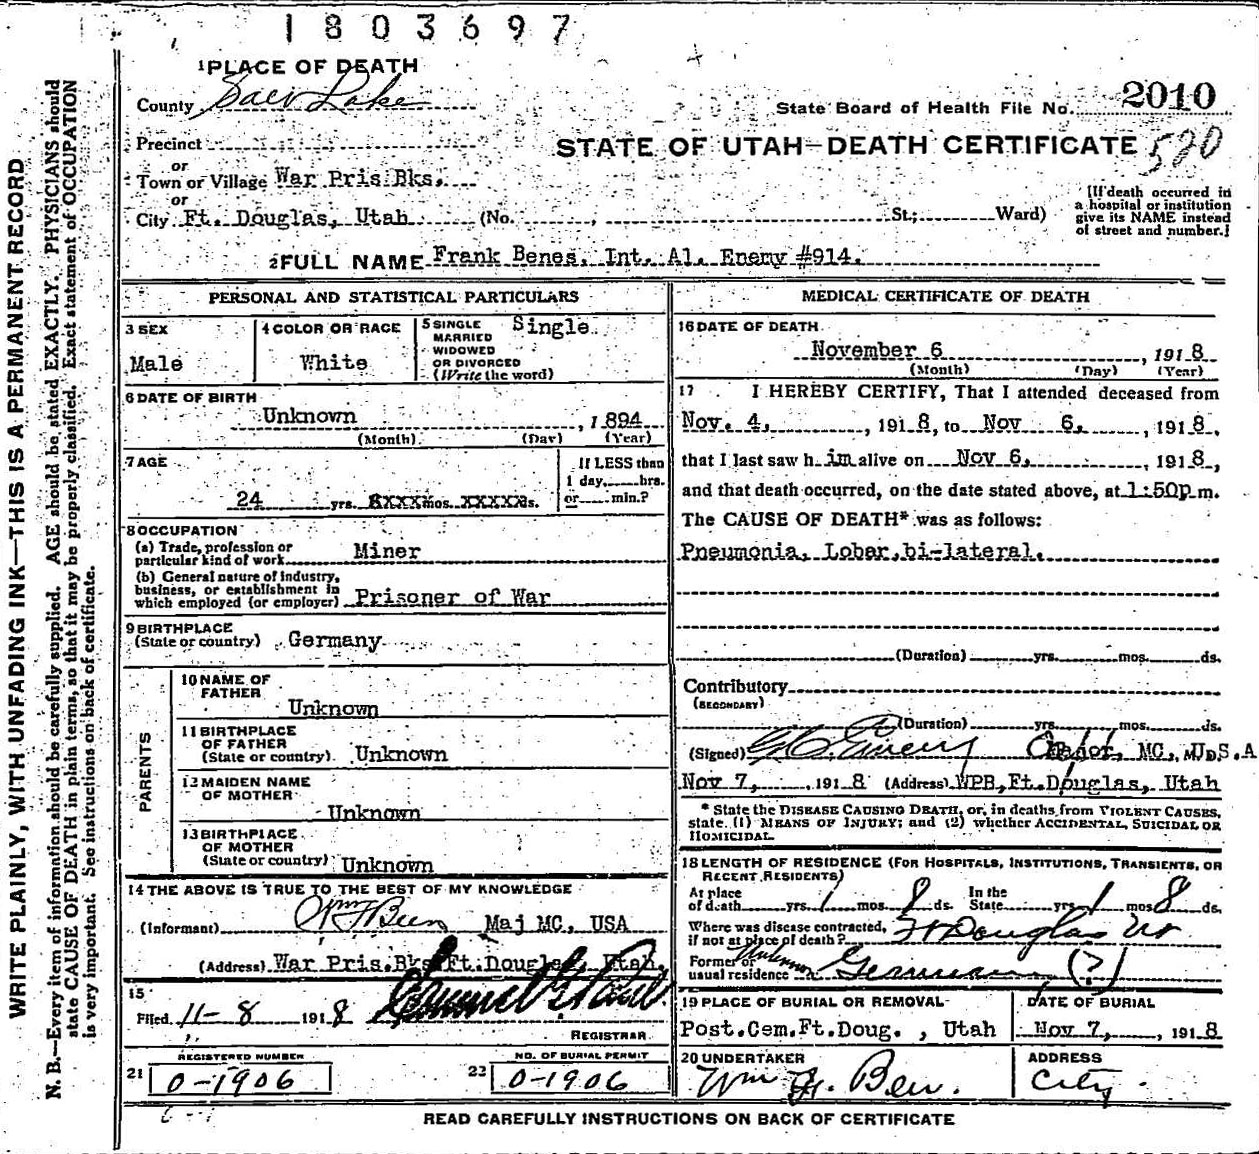 1803697
1 PLACE OF DEATH
County Salt Lake
State Board of Health File No. 2010
Precinct
STATE OF UTAH—DEATH CERTIFICATE 520
or
Town or Village War Pris.Bks.
or
City Ft. Douglas, Utah (No. , St.; Ward)
[If death occurred in
a hospital or institution
give its NAME instead
of street and number.]
2 FULL NAME Frank Benes, Int. Al. Enemy #914.
WRITE PLAINLY, WITH UNFADING INK—THIS IS A PERMANENT RECORD
N. B.—Every item of information should be carefully supplied. AGE should be stated EXACTLY. PHYSICIANS should
state CAUSE OF DEATH in plain terms, so that it may be properly classified. Exact statement of OCCUPATION
is very important. See instructions on back of certificate.
PERSONAL AND STATISTICAL PARTICULARS
3 SEX
Male
4 COLOR OR RACE
White
5 SINGLE Single
MARRIED
WIDOWED
OR DIVORCED
(Write the word)
6 DATE OF BIRTH
Unknown , 1894
(Month) (Day) (Year)
7 AGE
24 yrs. xxxx mos. xxxxx ds.
If LESS than
1 day, hrs.
or min.?
8 OCCUPATION
(a) Trade, profession or
particular kind of work Miner
(b) General nature of industry,
business, or establishment in
which employed (or employer) Prisoner of War
9 BIRTHPLACE
(State or country) Germany
PARENTS
10 NAME OF
FATHER
Unknown
11 BIRTHPLACE
OF FATHER
(State or country) Unknown
12 MAIDEN NAME
OF MOTHER
Unknown
13 BIRTHPLACE
OF MOTHER
(State or country) Unknown
14 THE ABOVE IS TRUE TO THE BEST OF MY KNOWLEDGE
(Informant) Wm F Beer Maj MC, USA
(Address) War Pris.Bks Ft.Douglas Utah.
15
Filed 11-8 1918
REGISTRAR
REGISTERED NUMBER
21 0-1906
NO. OF BURIAL PERMIT
22 0-1906
MEDICAL CERTIFICATE OF DEATH
16 DATE OF DEATH
November 6 , 1918
(Month) (Day) (Year)
17 I HEREBY CERTIFY, That I attended deceased from
Nov. 4, , 1918, to Nov 6, , 1918,
that I last saw h im alive on Nov 6, , 1918,
and that death occurred, on the date stated above, at 1:50p m.
The CAUSE OF DEATH* was as follows:
Pneumonia, Lobar,bi-lateral.
(Duration) yrs. mos. ds.
Contributory
(SECONDARY)
(Duration) yrs. mos. ds.
(Signed) MC, M.D. U.S.A
Nov 7, , 1918 (Address) WPB,Ft.Douglas, Utah
* State the DISEASE CAUSING DEATH, or, in deaths from VIOLENT CAUSES,
state (1) MEANS OF INJURY; and (2) whether ACCIDENTAL, SUICIDAL OR
HOMICIDAL.
18 LENGTH OF RESIDENCE (FOR HOSPITALS, INSTITUTIONS, TRANSIENTS, OR
RECENT RESIDENTS)
At place In the
of death yrs. 1 mos. 8 ds. State yrs. 1 mos. 8 ds.
Where was disease contracted,
if not at place of death? Ft Douglas Ut
Former or
usual residence Unknown German (?)
19 PLACE OF BURIAL OR REMOVAL
Post.Cem.Ft.Doug. , Utah
DATE OF BURIAL
Nov 7, , 1918
20 UNDERTAKER
Wm F. Beer.
ADDRESS
City.
READ CAREFULLY INSTRUCTIONS ON BACK OF CERTIFICATE